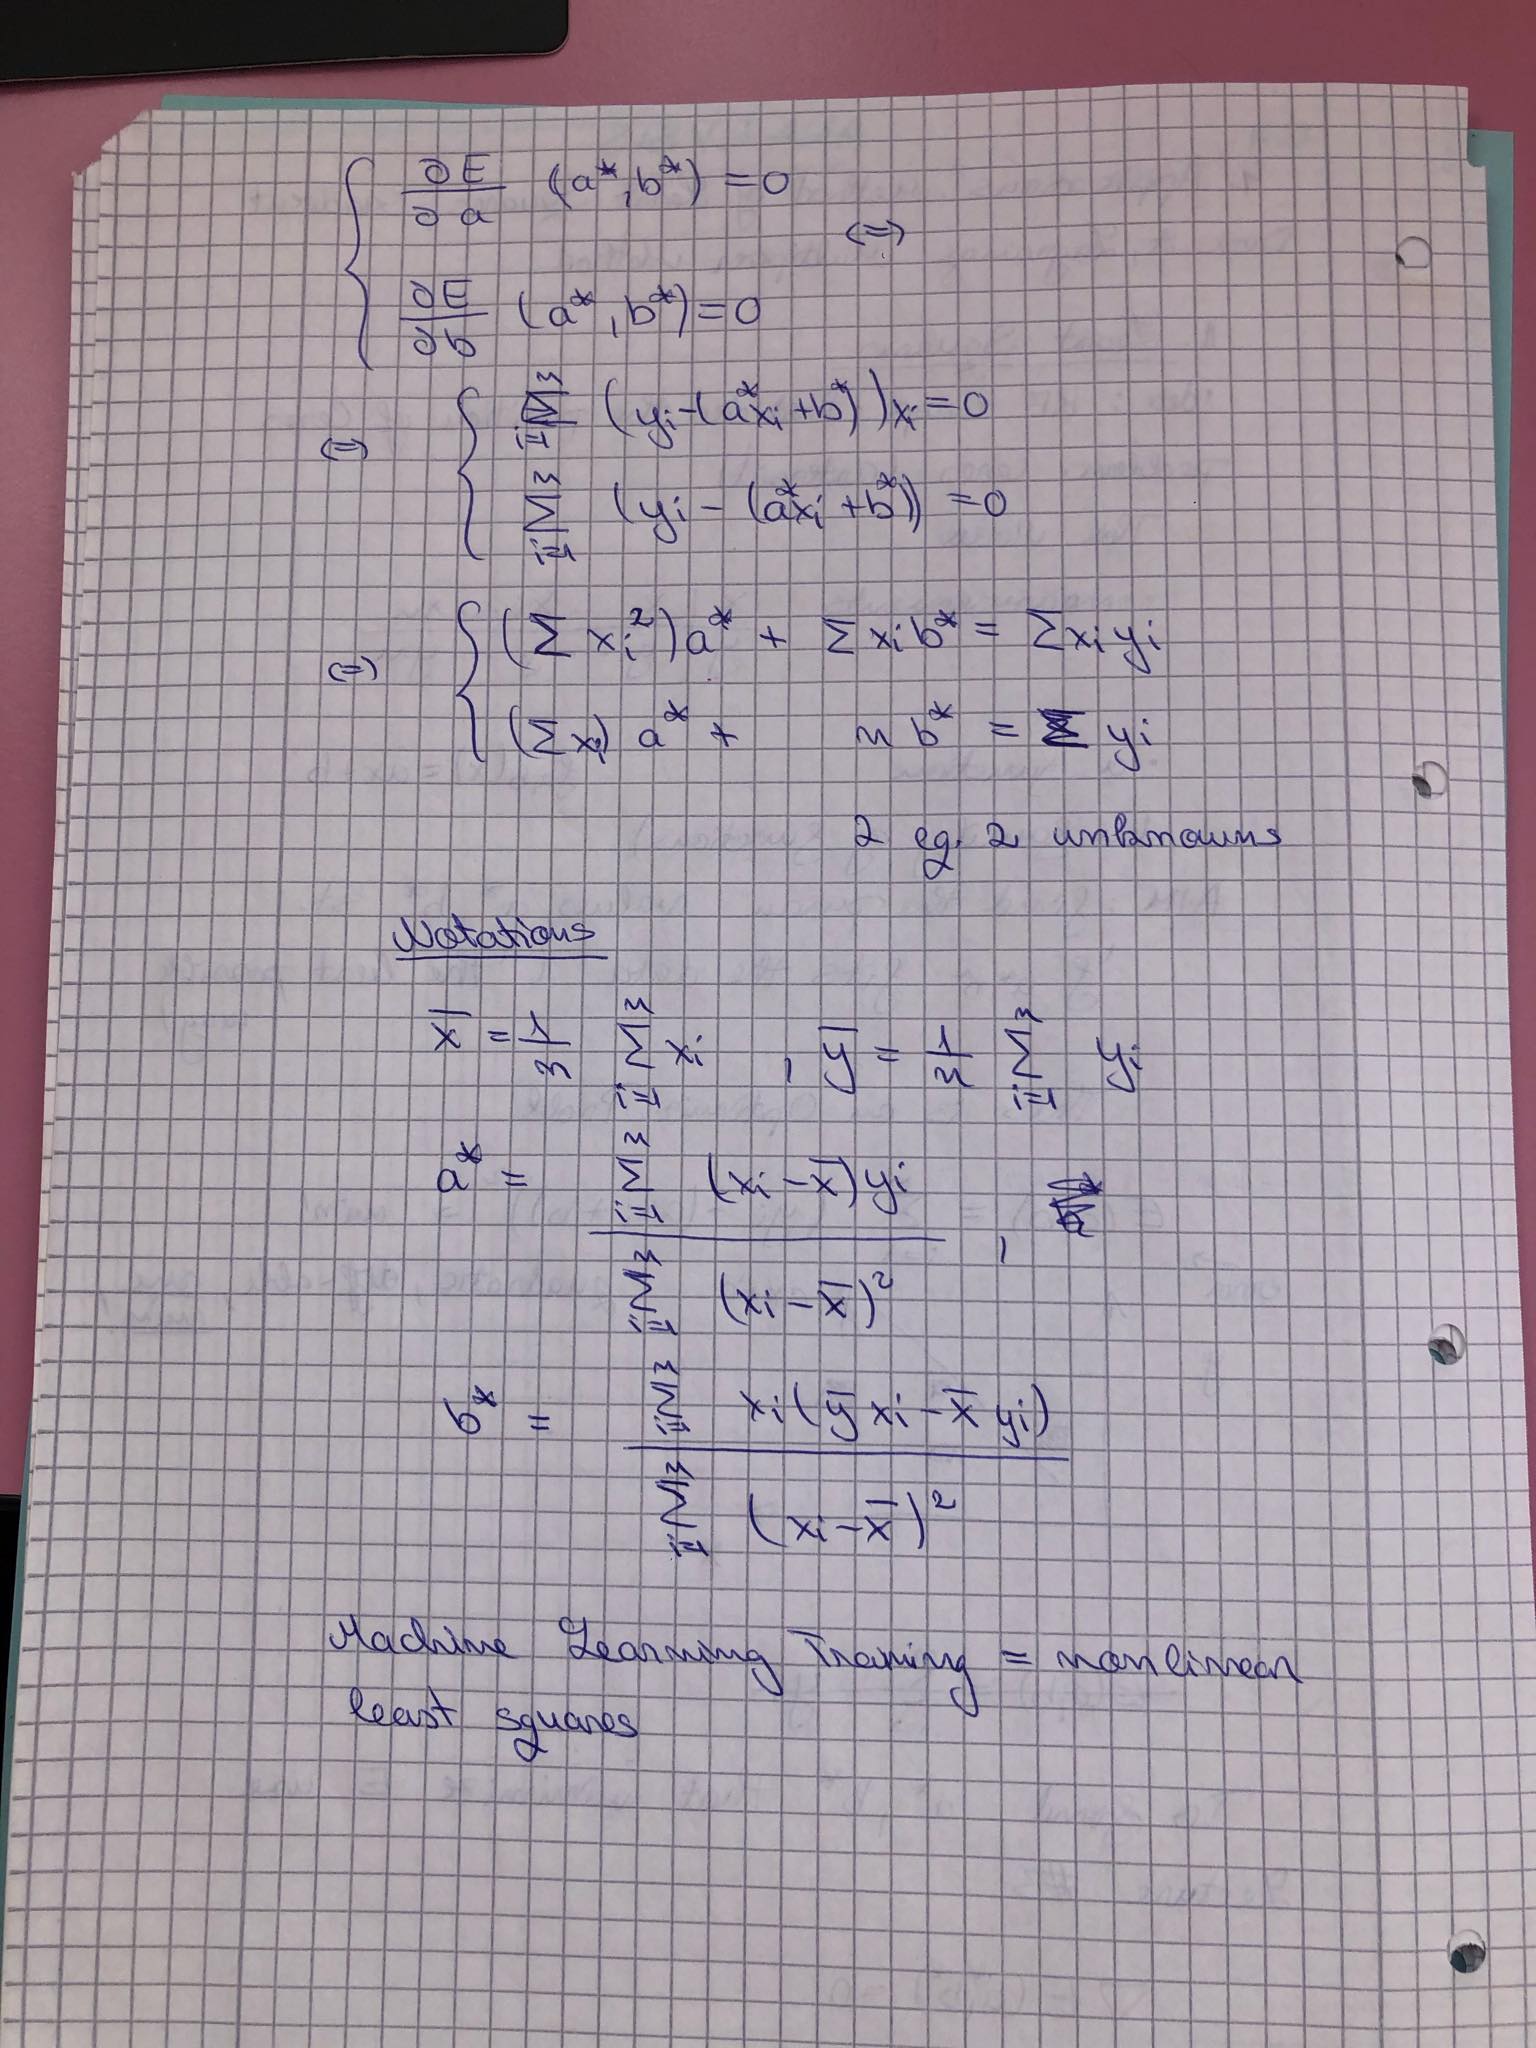 ∂E/∂a (a*, b*) = 0
⇔
∂E/∂b (a*, b*) = 0
⇔ { ∑_{i=1}^{n} (yi - (a*xi + b*))xi = 0
∑_{i=1}^{n} (yi - (a*xi + b*)) = 0
⇔ { (∑ xi²)a* + ∑ xi b* = ∑ xi yi
(∑ xi) a* + n b* = ∑ yi
2 eq. 2 unknowns
Notations
x̄ = 1/n ∑_{i=1}^{n} xi , ȳ = 1/n ∑_{i=1}^{n} yi
a* = ∑_{i=1}^{n} (xi - x̄)yi / ∑_{i=1}^{n} (xi - x̄)² ,
b* = ∑_{i=1}^{n} xi(ȳ xi - x̄ yi) / ∑_{i=1}^{n} (xi - x̄)²
Machine Learning Training = nonlinear
least squares